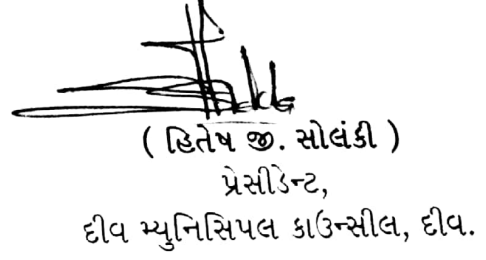 ( હિતેષ જી. સોલંકી )
પ્રેસીડેન્ટ,
દીવ મ્યુનિસિપલ કાઉન્સીલ, દીવ.